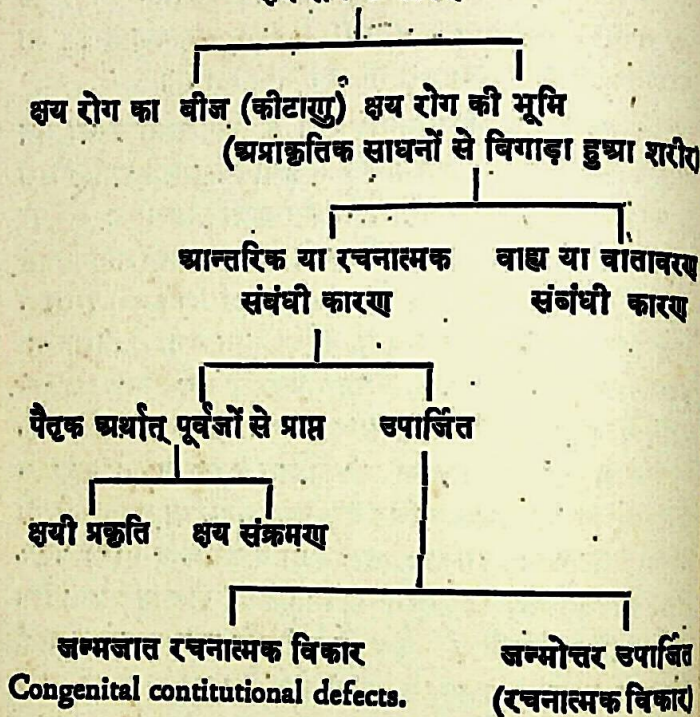 क्षय रोग का बीज (कीटाणु) क्षय रोग की भूमि
(अप्राकृतिक साधनों से बिगाड़ा हुआ शरीर)
आन्तरिक या रचनात्मक वाह्य या वातावरण
संबंधी कारण संबंधी कारण
पैतृक अर्थात् पूर्वजों से प्राप्त उपार्जित
क्षयी प्रकृति क्षय संक्रमण
जन्मजात रचनात्मक विकार जन्मोत्तर उपार्जित
Congenital contitutional defects. (रचनात्मक विकार)